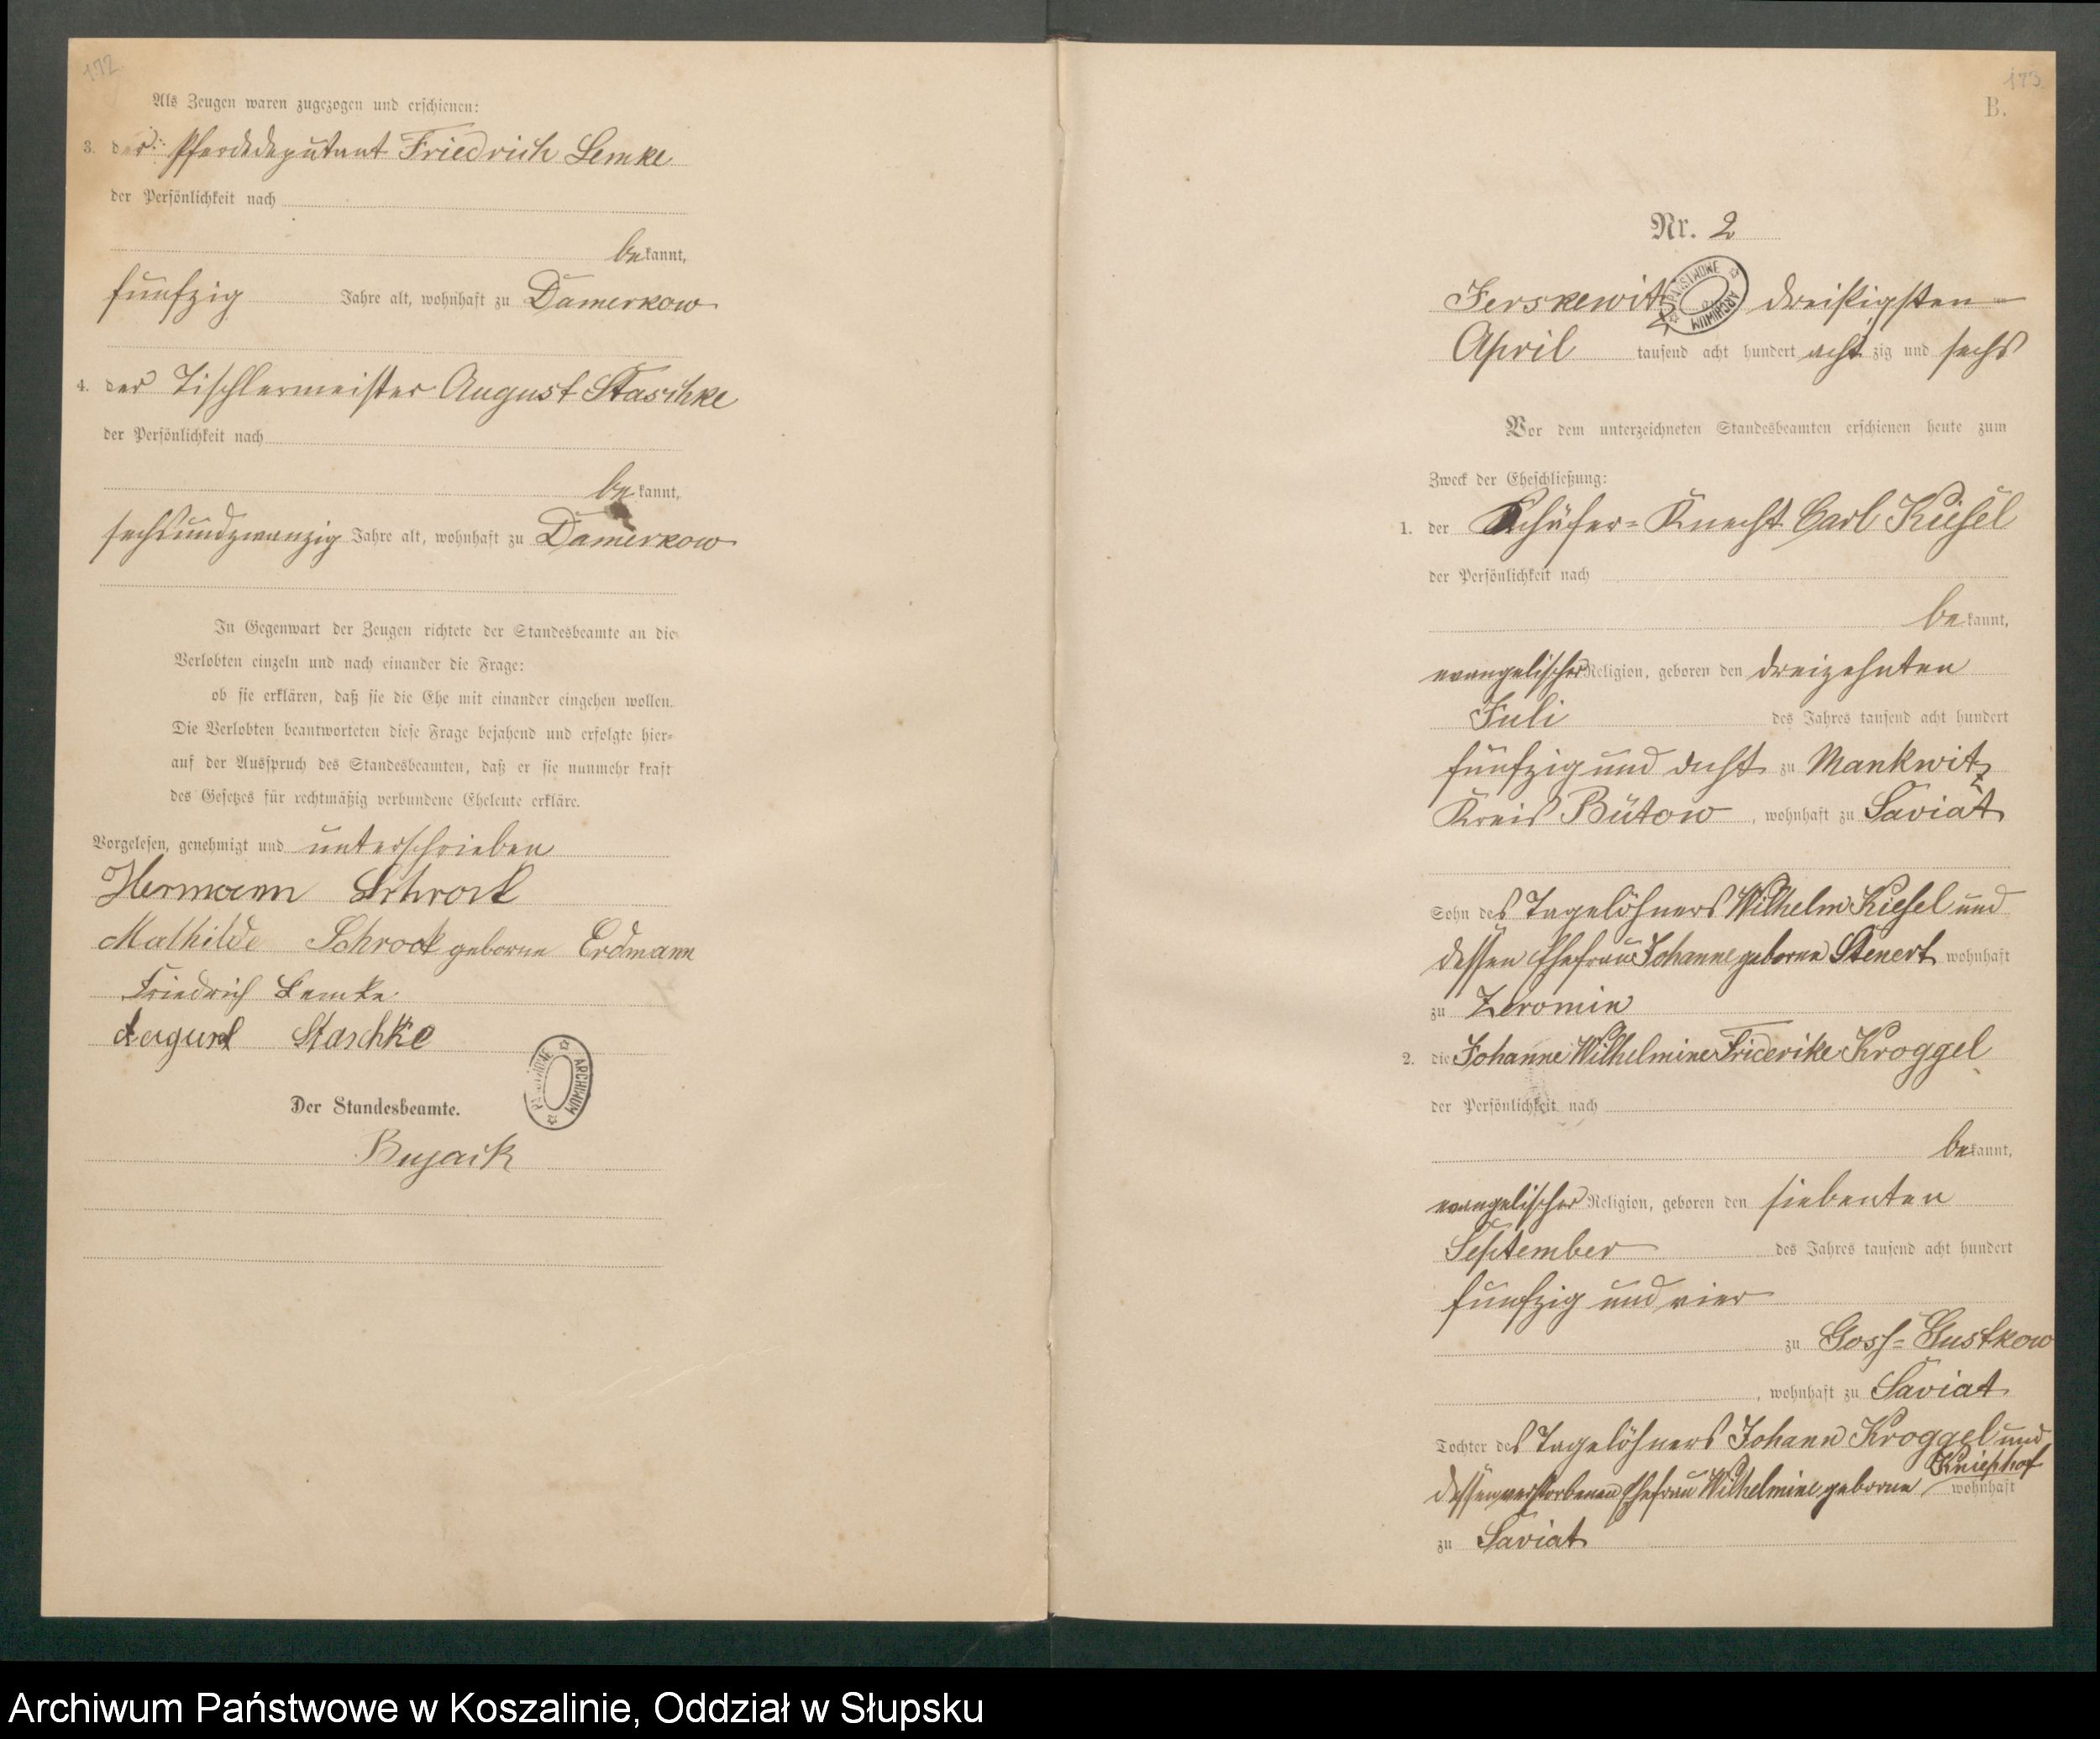 172
Als Zeugen waren zugezogen und erschienen:
3. der Pferdedeputant Friedrich Lemke
der Persönlichkeit nach
bekannt,
fünfzig Jahre alt, wohnhaft zu Damerkow
4. der Tischlermeister August Staschke
der Persönlichkeit nach
bekannt,
sechsundzwanzig Jahre alt, wohnhaft zu Damerkow
In Gegenwart der Zeugen richtete der Standesbeamte an die
Verlobten einzeln und nach einander die Frage:
ob sie erklären, daß sie die Ehe mit einander eingehen wollen.
Die Verlobten beantworteten diese Frage bejahend und erfolgte hier-
auf der Ausspruch des Standesbeamten, daß er sie nunmehr kraft
des Gesetzes für rechtmäßig verbundene Eheleute erkläre.
Vorgelesen, genehmigt und unterschrieben
Hermann Schrock
Mathilde Schrock geborne Erdmann
Friedrich Lemke
August Staschke
ARCHIWUM
Der Standesbeamte.
173
B.
Nr. 2
Jerskewitz dreißigsten
PAŃSTWOWE ARCHIWUM
April tausend acht hundert achtzig und sechs
Vor dem unterzeichneten Standesbeamten erschienen heute zum
Zweck der Eheschließung:
1. der Schäfer-Knecht Carl Kiesel
der Persönlichkeit nach
bekannt,
evangelischer Religion, geboren den dreizehnten
Juli des Jahres tausend acht hundert
fünfzig und acht zu Mankwitz
Kreis Bütow, wohnhaft zu Saviat
Sohn des Tagelöhners Wilhelm Kiesel und
dessen Ehefrau Johanne geborne Stenert wohnhaft
zu Zeromin
2. die Johanne Wilhelmine Friderike Kroggel
der Persönlichkeit nach
bekannt,
evangelischer Religion, geboren den siebenten
September des Jahres tausend acht hundert
fünfzig und vier
zu Goss-Gustkow
, wohnhaft zu Saviat
Tochter des Tagelöhners Johann Kroggel und
Kniephof
dessen verstorbenen Ehefrau Wilhelmine geborne wohnhaft
zu Saviat
Archiwum Państwowe w Koszalinie, Oddział w Słupsku